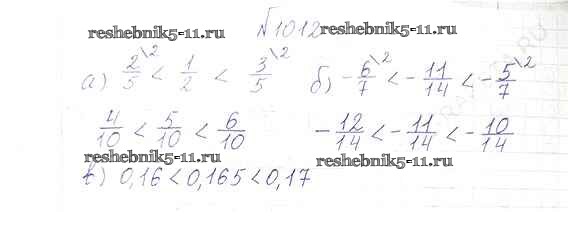 №1012
reshebnik5-11.ru.
reshebnik5-11.ru
а) 2/5 \2 < 1/2 < 3/5 \2 б) -6/7 \2 < -11/14 < -5/7 \2
4/10 < 5/10 < 6/10 -12/14 < -11/14 < -10/14
reshebnik5-11.ru
reshebnik5-11.ru
в) 0,16 < 0,165 < 0,17